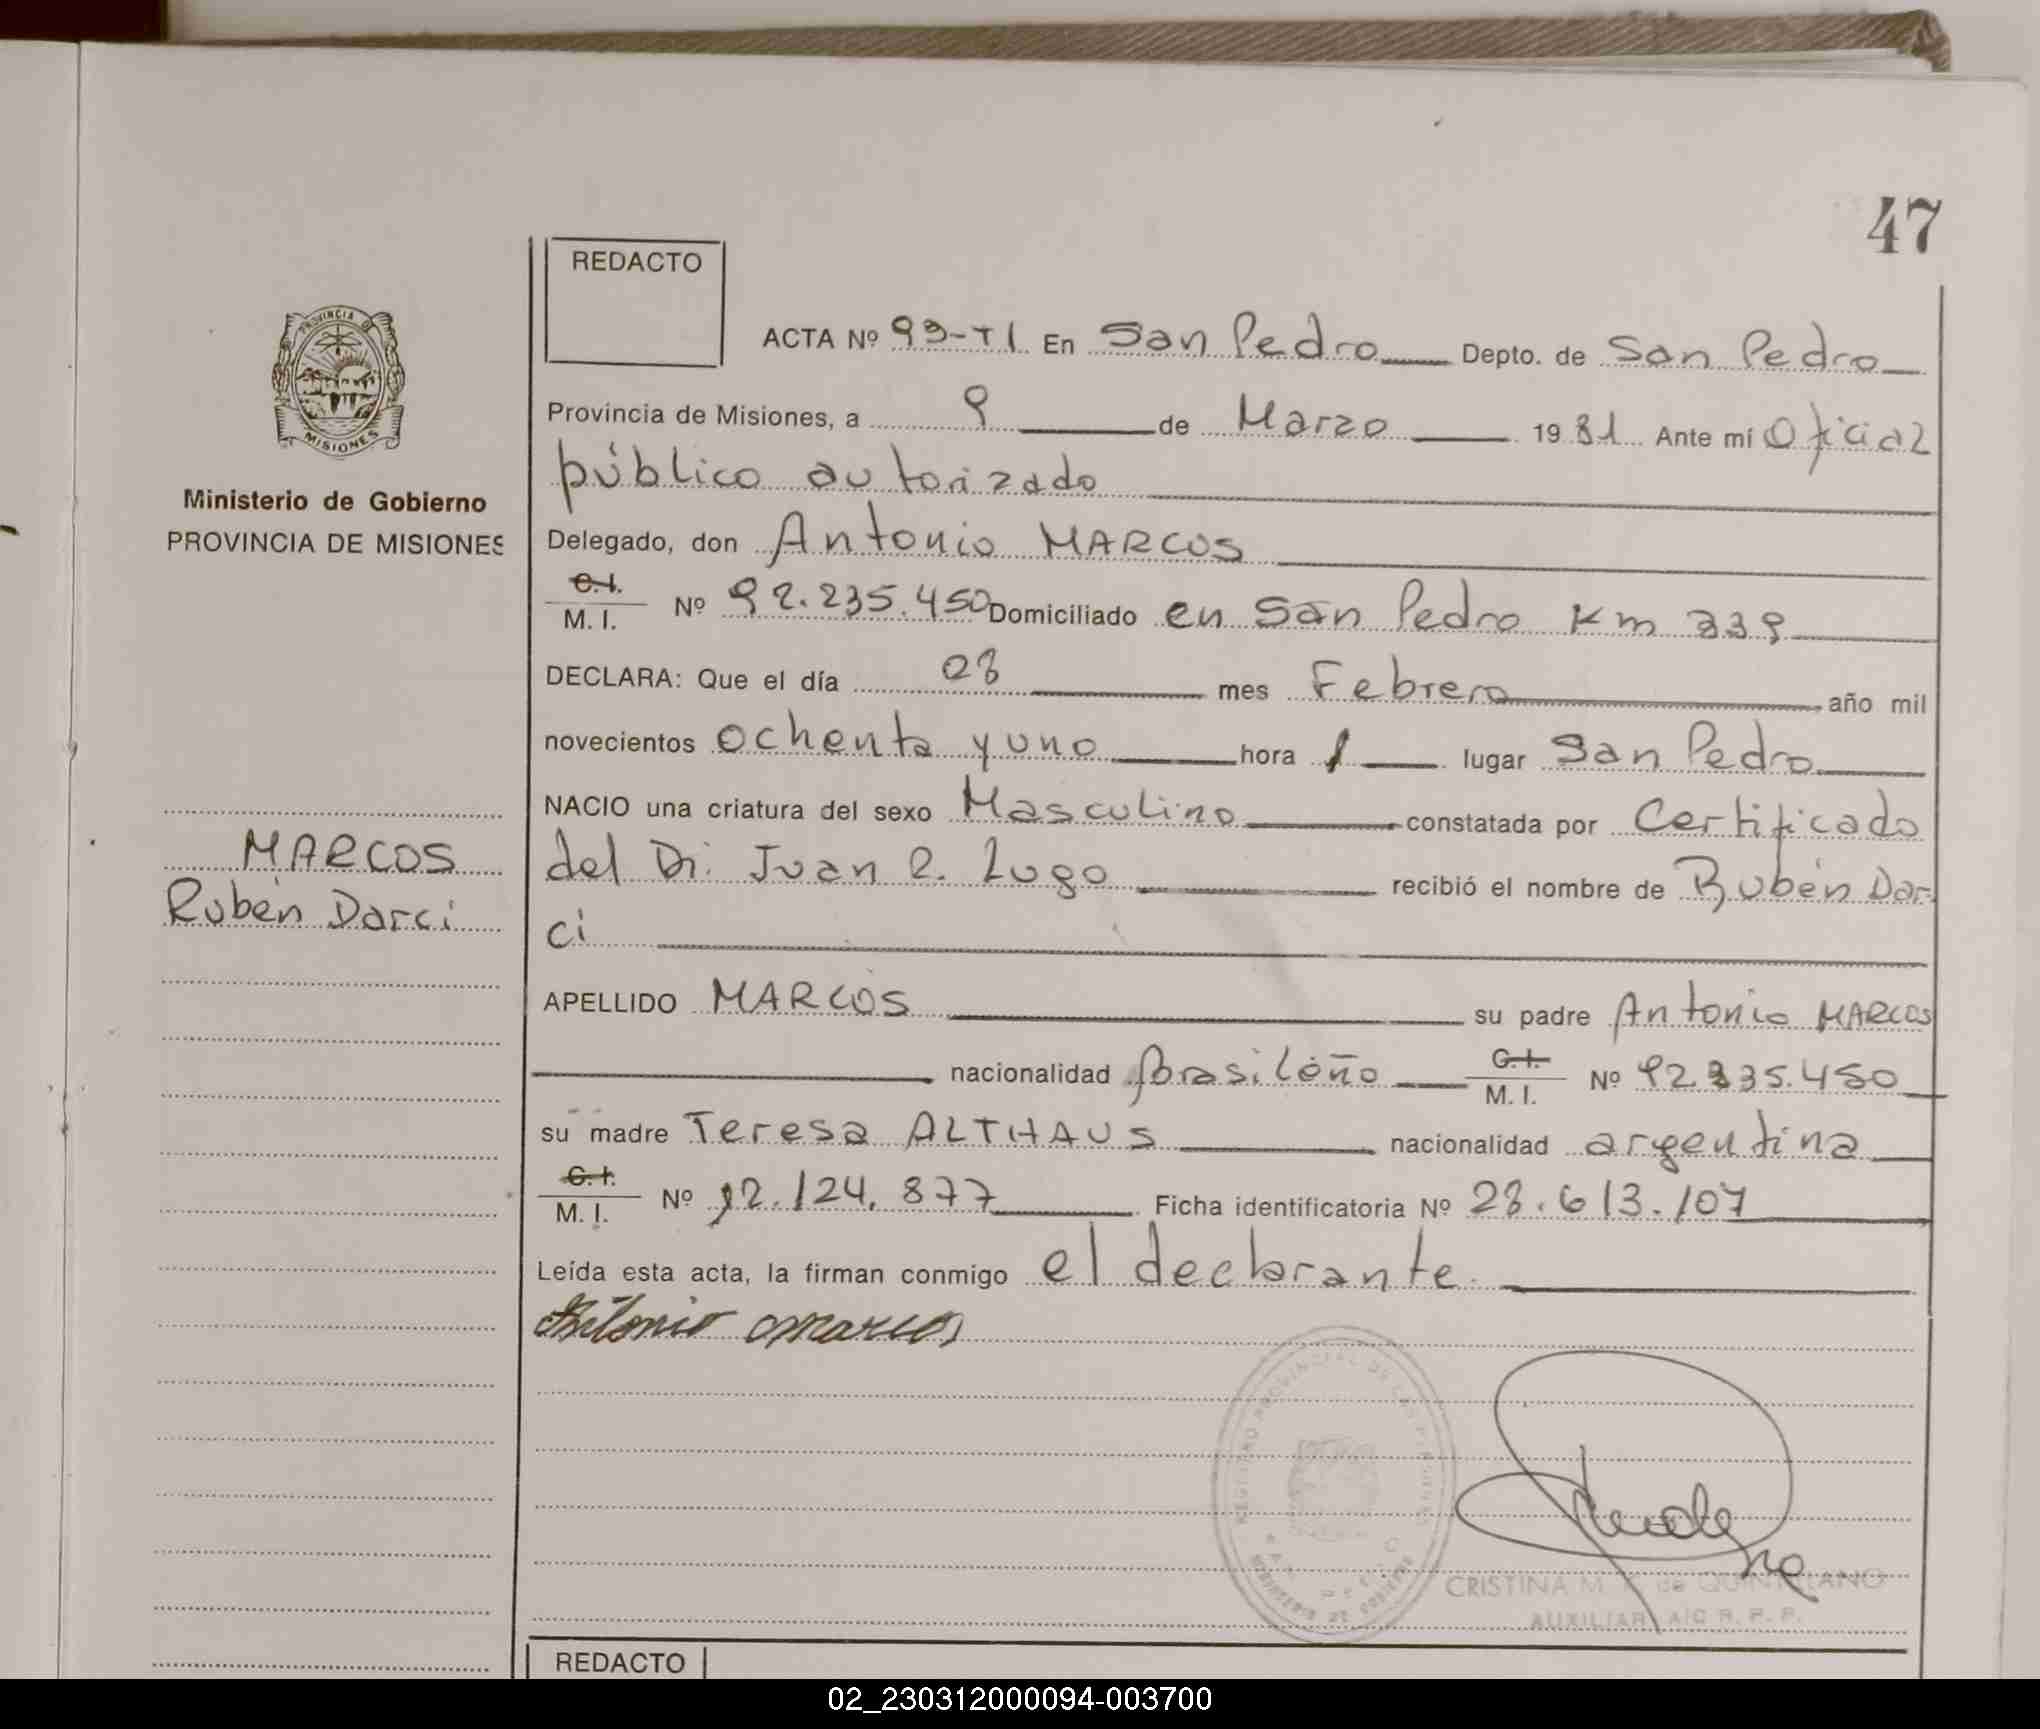 47
REDACTO
ACTA Nº 93-T1 En San Pedro Depto. de San Pedro
Provincia de Misiones, a 9 de Marzo 1981 Ante mí Oficial
público autorizado
Delegado, don Antonio MARCOS
C.I.
M.I. Nº 92.235.450 Domiciliado en San Pedro Km 339
DECLARA: Que el día 08 mes Febrero año mil
novecientos ochenta y uno hora 1 lugar San Pedro
NACIO una criatura del sexo Masculino constatada por Certificado
del Dr. Juan R. Lugo recibió el nombre de Rubén Dar-
ci
APELLIDO MARCOS su padre Antonio MARCOS
nacionalidad brasileño C.I.
M.I. Nº 92.235.450
su madre Teresa ALTHAUS nacionalidad argentina
C.I.
M.I. Nº 12.124.877 Ficha identificatoria Nº 28.613.107
Leída esta acta, la firman conmigo el declarante.
Antonio Marcos
PROVINCIA DE
MISIONES
Ministerio de Gobierno
PROVINCIA DE MISIONES
MARCOS
Rubén Darci
REGISTRO PROVINCIAL DE LAS PERSONAS
MINISTERIO DE GOBIERNO
CRISTINA M. de QUINTELANO
AUXILIAR A/C R. P. P.
REDACTO
02_230312000094-003700